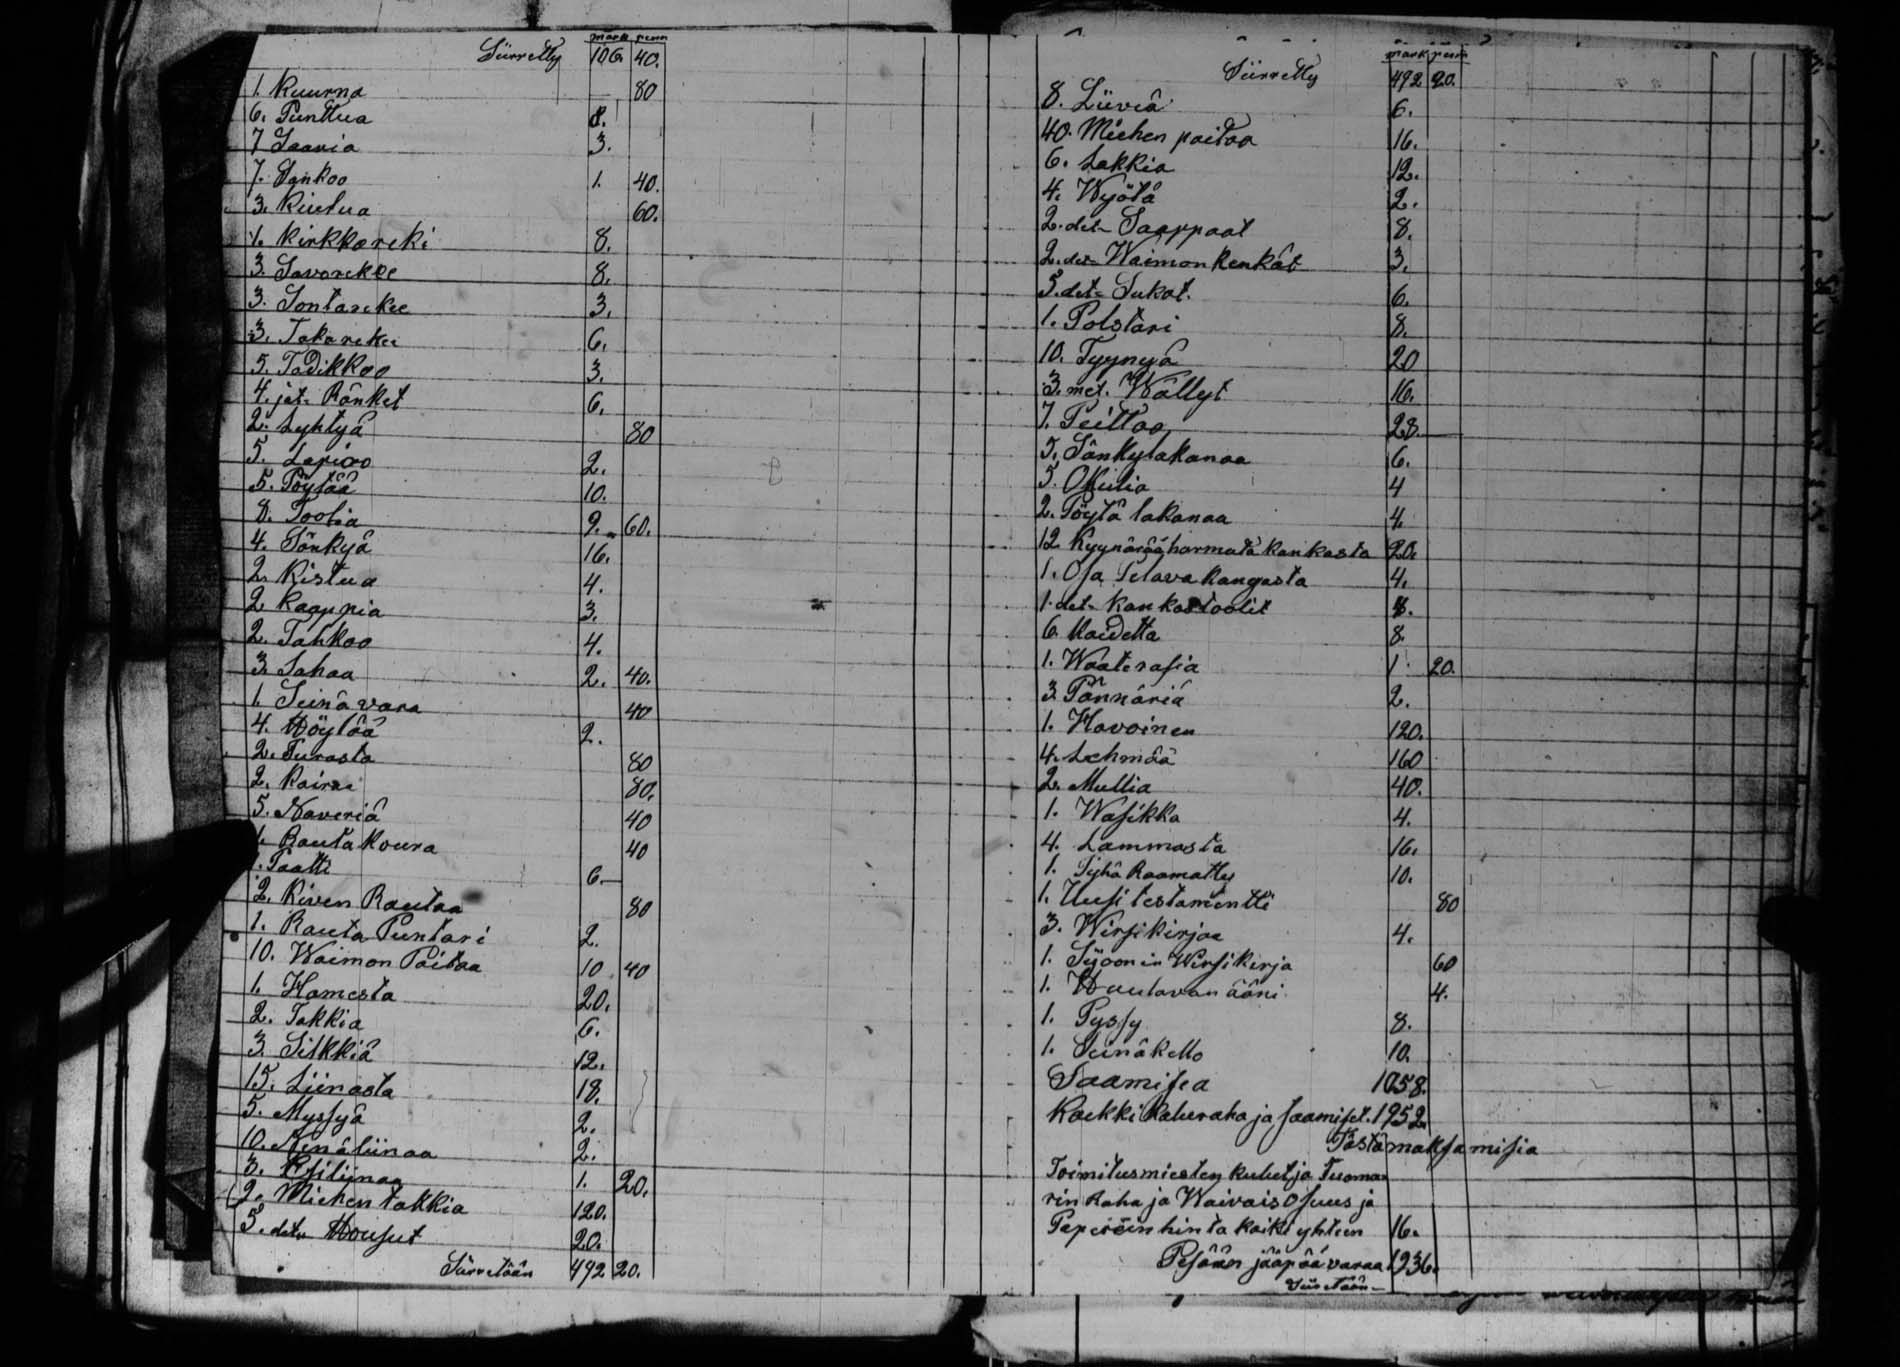 mark penn
Siirretty 106. 40.
1. Kuurna 80
6. Punttua 8.
7 Saavia 3.
7. Sankoo 1. 40.
3. Kiulua 60.
1. Kirkkoreki 8.
3. Savorekee 8.
3. Sontarekee 3.
3. Takarekee 6.
5. Tadikkoo 3.
4. jät- Ränket 6.
2. Lyhtyä 80
5. Lapioo 2.
5. Pöytää 10.
8. Toolia 9. 60.
4. Sänkyä 16.
2. Kistua 4.
2 Kaappia 3.
2. Tahkoo 4.
3. Sahaa 2. 40.
1. Seinävara 40
4. Höylää 2.
2. Turasta 80
2. Kairaa 80.
5. Naveriä 40
1. Rautakoura 40
1. Paatti 6.
2. Kiven Rautaa 80
1. Rauta Puntari 2.
10. Waimon Paitaa 10 40
1. Hamesta 20.
2. Takkia 6.
3. Silkkiä 12.
15. Liinasta 18.
5. Myssyä 2.
10. Nenäliinaa 2.
3. Käsiliinaa 1. 20.
2. Miehen takkia 120.
5. det- Housut 20.
Siirretään 492 20.
mark penn
Siirretty 492 20.
8. Liiviä 6.
40. Miehen paitaa 16.
6. Lakkia 12.
4. Wyötä 2.
2. det- Saappaat 8.
2. det- Waimon kenkät 3.
5. det- Sukat. 6.
1. Polstari 8.
10. Tyynyä 20
3. met. Wällyt 16.
7. Peittoo 28.
5. Sänkylakanaa 6.
5. 4
2. Pöytä lakanaa 4.
12 Kyynärää harmata kankasta 20.
1. Osa Pelava kangasta 4.
1. det- Kankastoolit 8.
6. Kaidetta 8.
1. Waaterasia 1. 20.
3. Pännäriä 2.
1. Havoinen 120.
4. Lehmää 160
2. Mullia 40.
1. Wasikka 4.
4. Lammasta 16.
1. Pyhä Raamattu 10.
1. Uusi testamentti 80
3. Wirsikirjaa 4.
1. Sijoonin Wirsikirja 60
1. Huutavan ääni 4.
1. Pyssy 8.
1. Seinäkello 10.
Saamisea 1058.
Kaekki kaluraha ja saamiset. 1952.
Tästä maksamisia
Toimitusmiesten kulut ja Tuoma=
rin Raha ja Waivais Osuus ja
Paperein hinta kaiki yhteen 16.
Pesään jääpää varaa 1936.
Siiretään